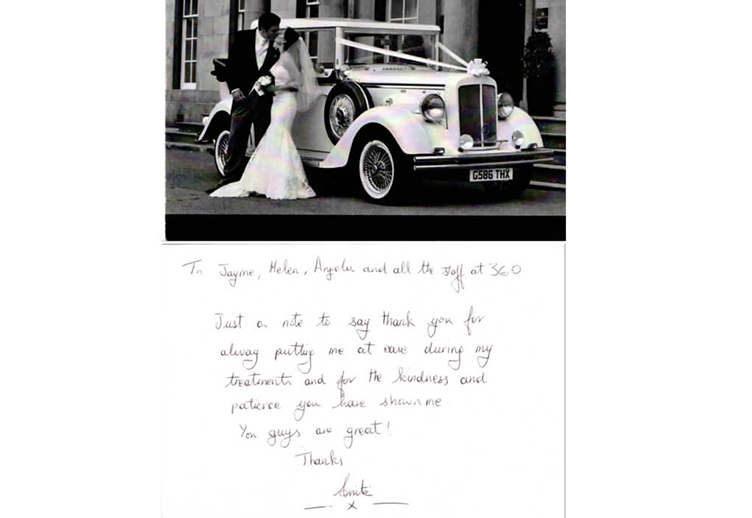 G586 THX
To Jayme, Helen, Angela and all the staff at 360
Just a note to say thank you for
alway putting me at ease during my
treatments and for the kindness and
patience you have shown me
You guys are great!
Thanks
Anita
x